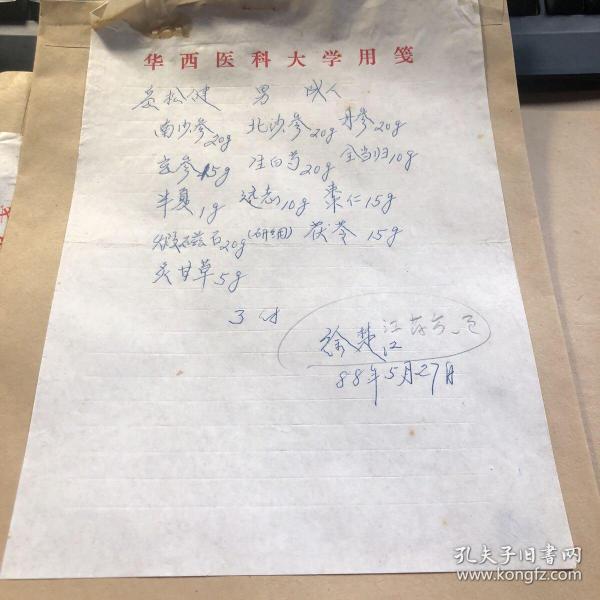 华西医科大学用笺
松健 男 成人
南沙参20g 北沙参20g 丹参20g
玄参15g 生白芍20g 全当归10g
半夏1g 远志10g 枣仁15g
煅磁石20g(研细) 茯苓15g
炙甘草5g
3付
徐楚江
88年5月27日
孔夫子旧书网
www.kongfz.com